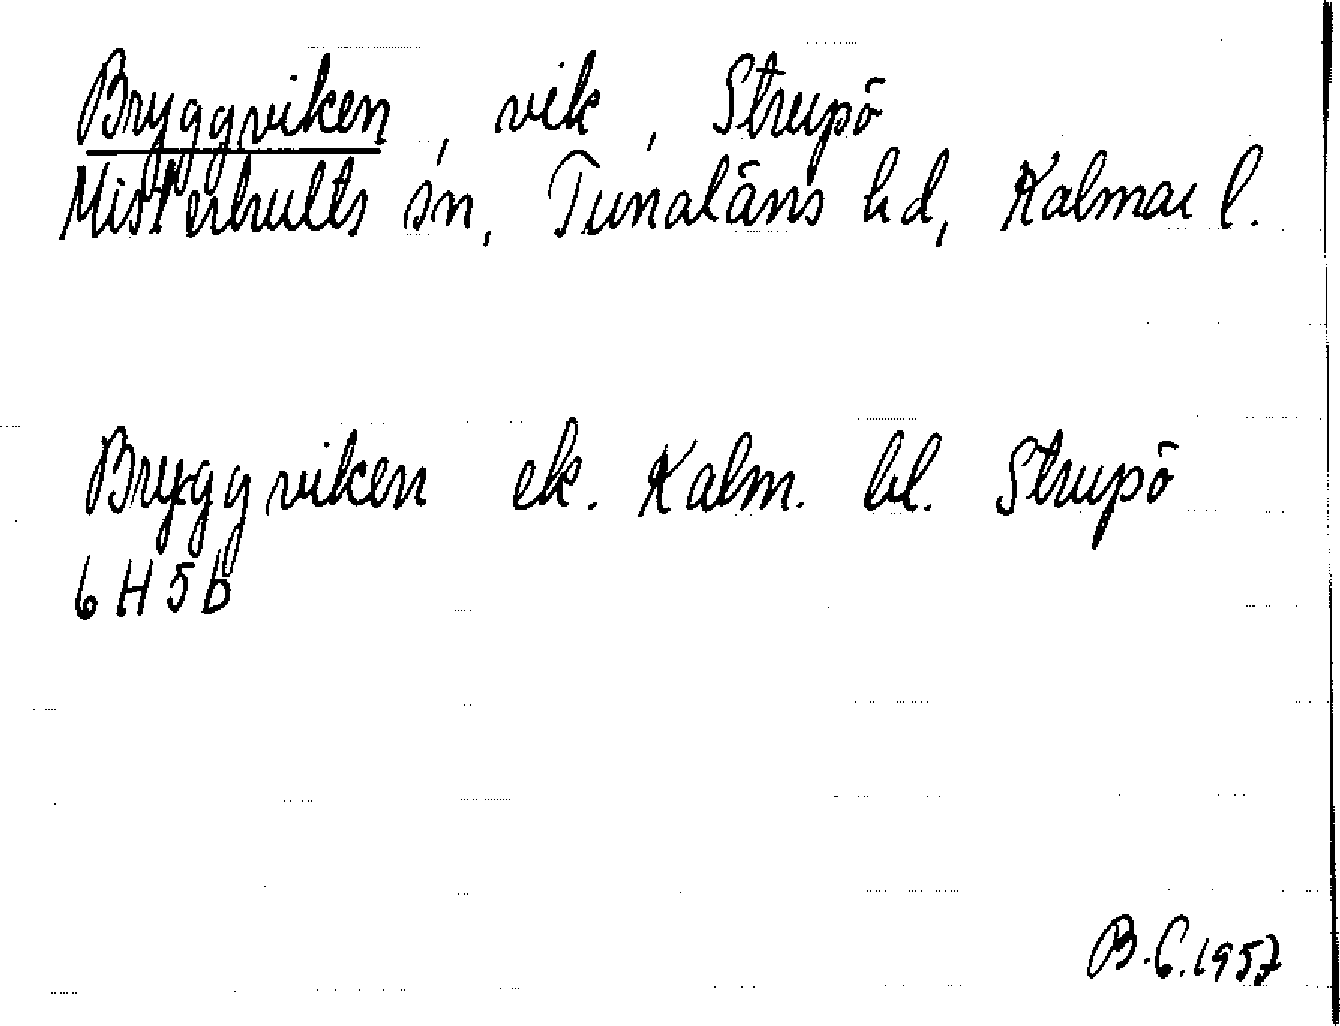 Bryggviken, vik, Strupö
Misterhults sn, Tunaläns hd, Kalmar l.
Bryggviken ek. Kalm. bl. Strupö
6 H 5 b
B.C.1957